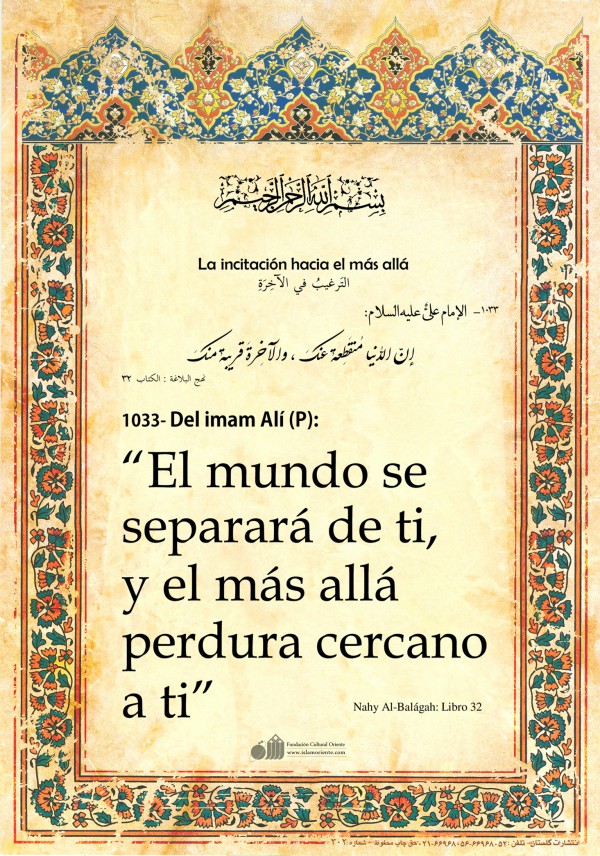 بِسْمِ اللَّهِ الرَّحْمَنِ الرَّحِيمِ
La incitación hacia el más allá
التَرغيبُ في الآخِرَةِ
١٠٣٣- الإمام عليٌّ عليه السلام:
إنّ الدُنيا مُنقَطِعة عنك ، والآخِرَةَ قريبة منك
نهج البلاغة : الكتاب ٣٢
1033- Del imam Alí (P):
“El mundo se
separará de ti,
y el más allá
perdura cercano
a ti”
Nahy Al-Balágah: Libro 32
Fundación Cultural Oriente
www.islamoriente.com
انتشارات گلستان - تلفن: ۵۲-۶۶۹۶۸۰۵۶-۶۶۹۶۸۰-۰۲۱ حق چاپ محفوظ - شماره: ۳۰۲